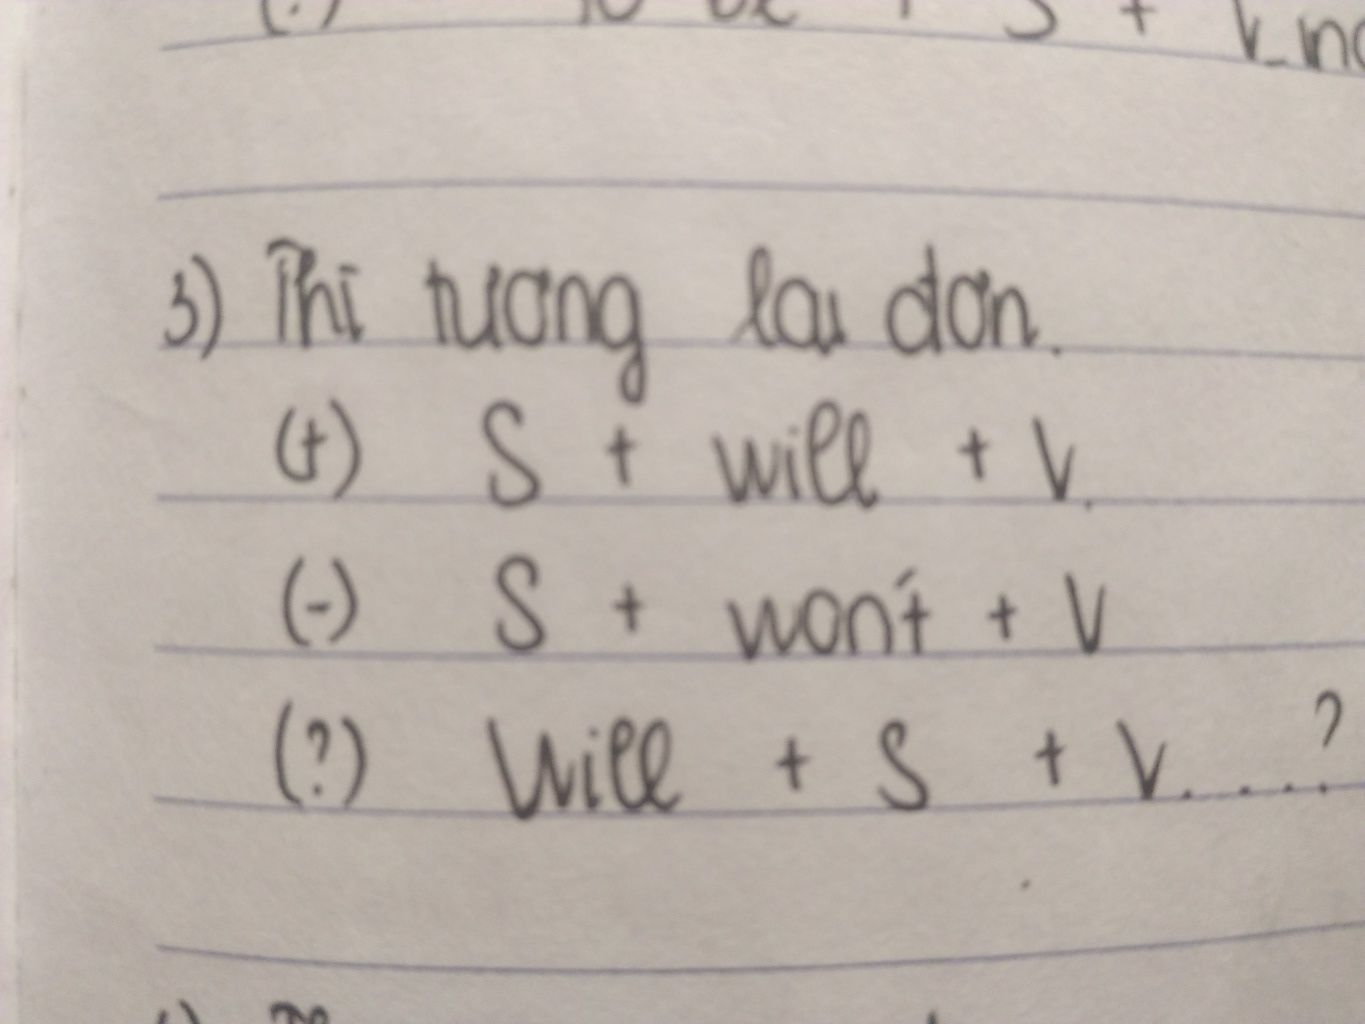 to be + S + V_ing
3) Thì tương lai đơn.
(+) S + will + V.
(-) S + won't + V
(?) Will + S + V.....?